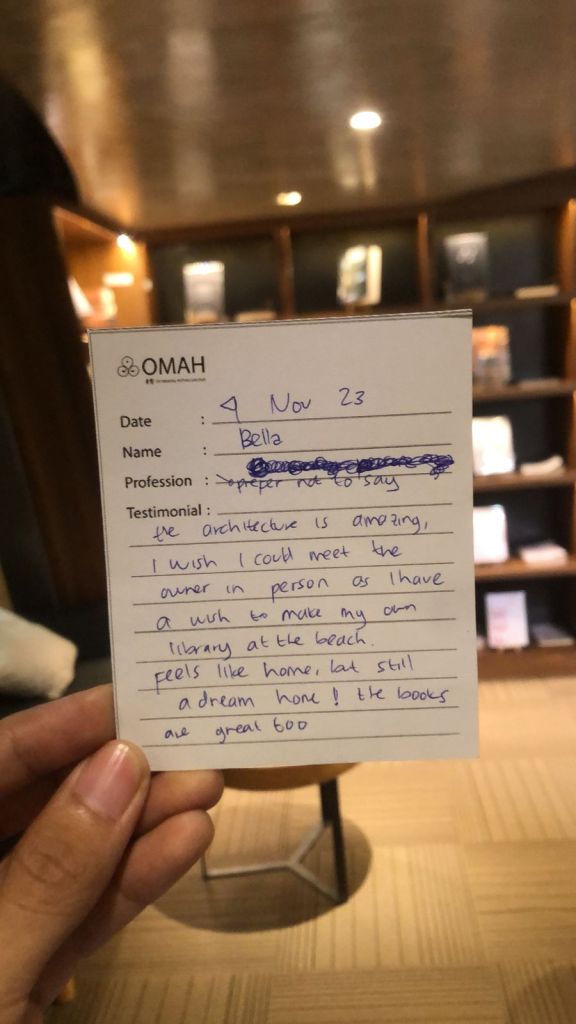 OMAH
Date : 4 Nov 23
Name : Bella
Profession : prefer not to say
Testimonial :
the architecture is amazing,
I wish I could meet the
owner in person as I have
a wish to make my own
library at the beach.
feels like home, but still
a dream home! the books
are great too